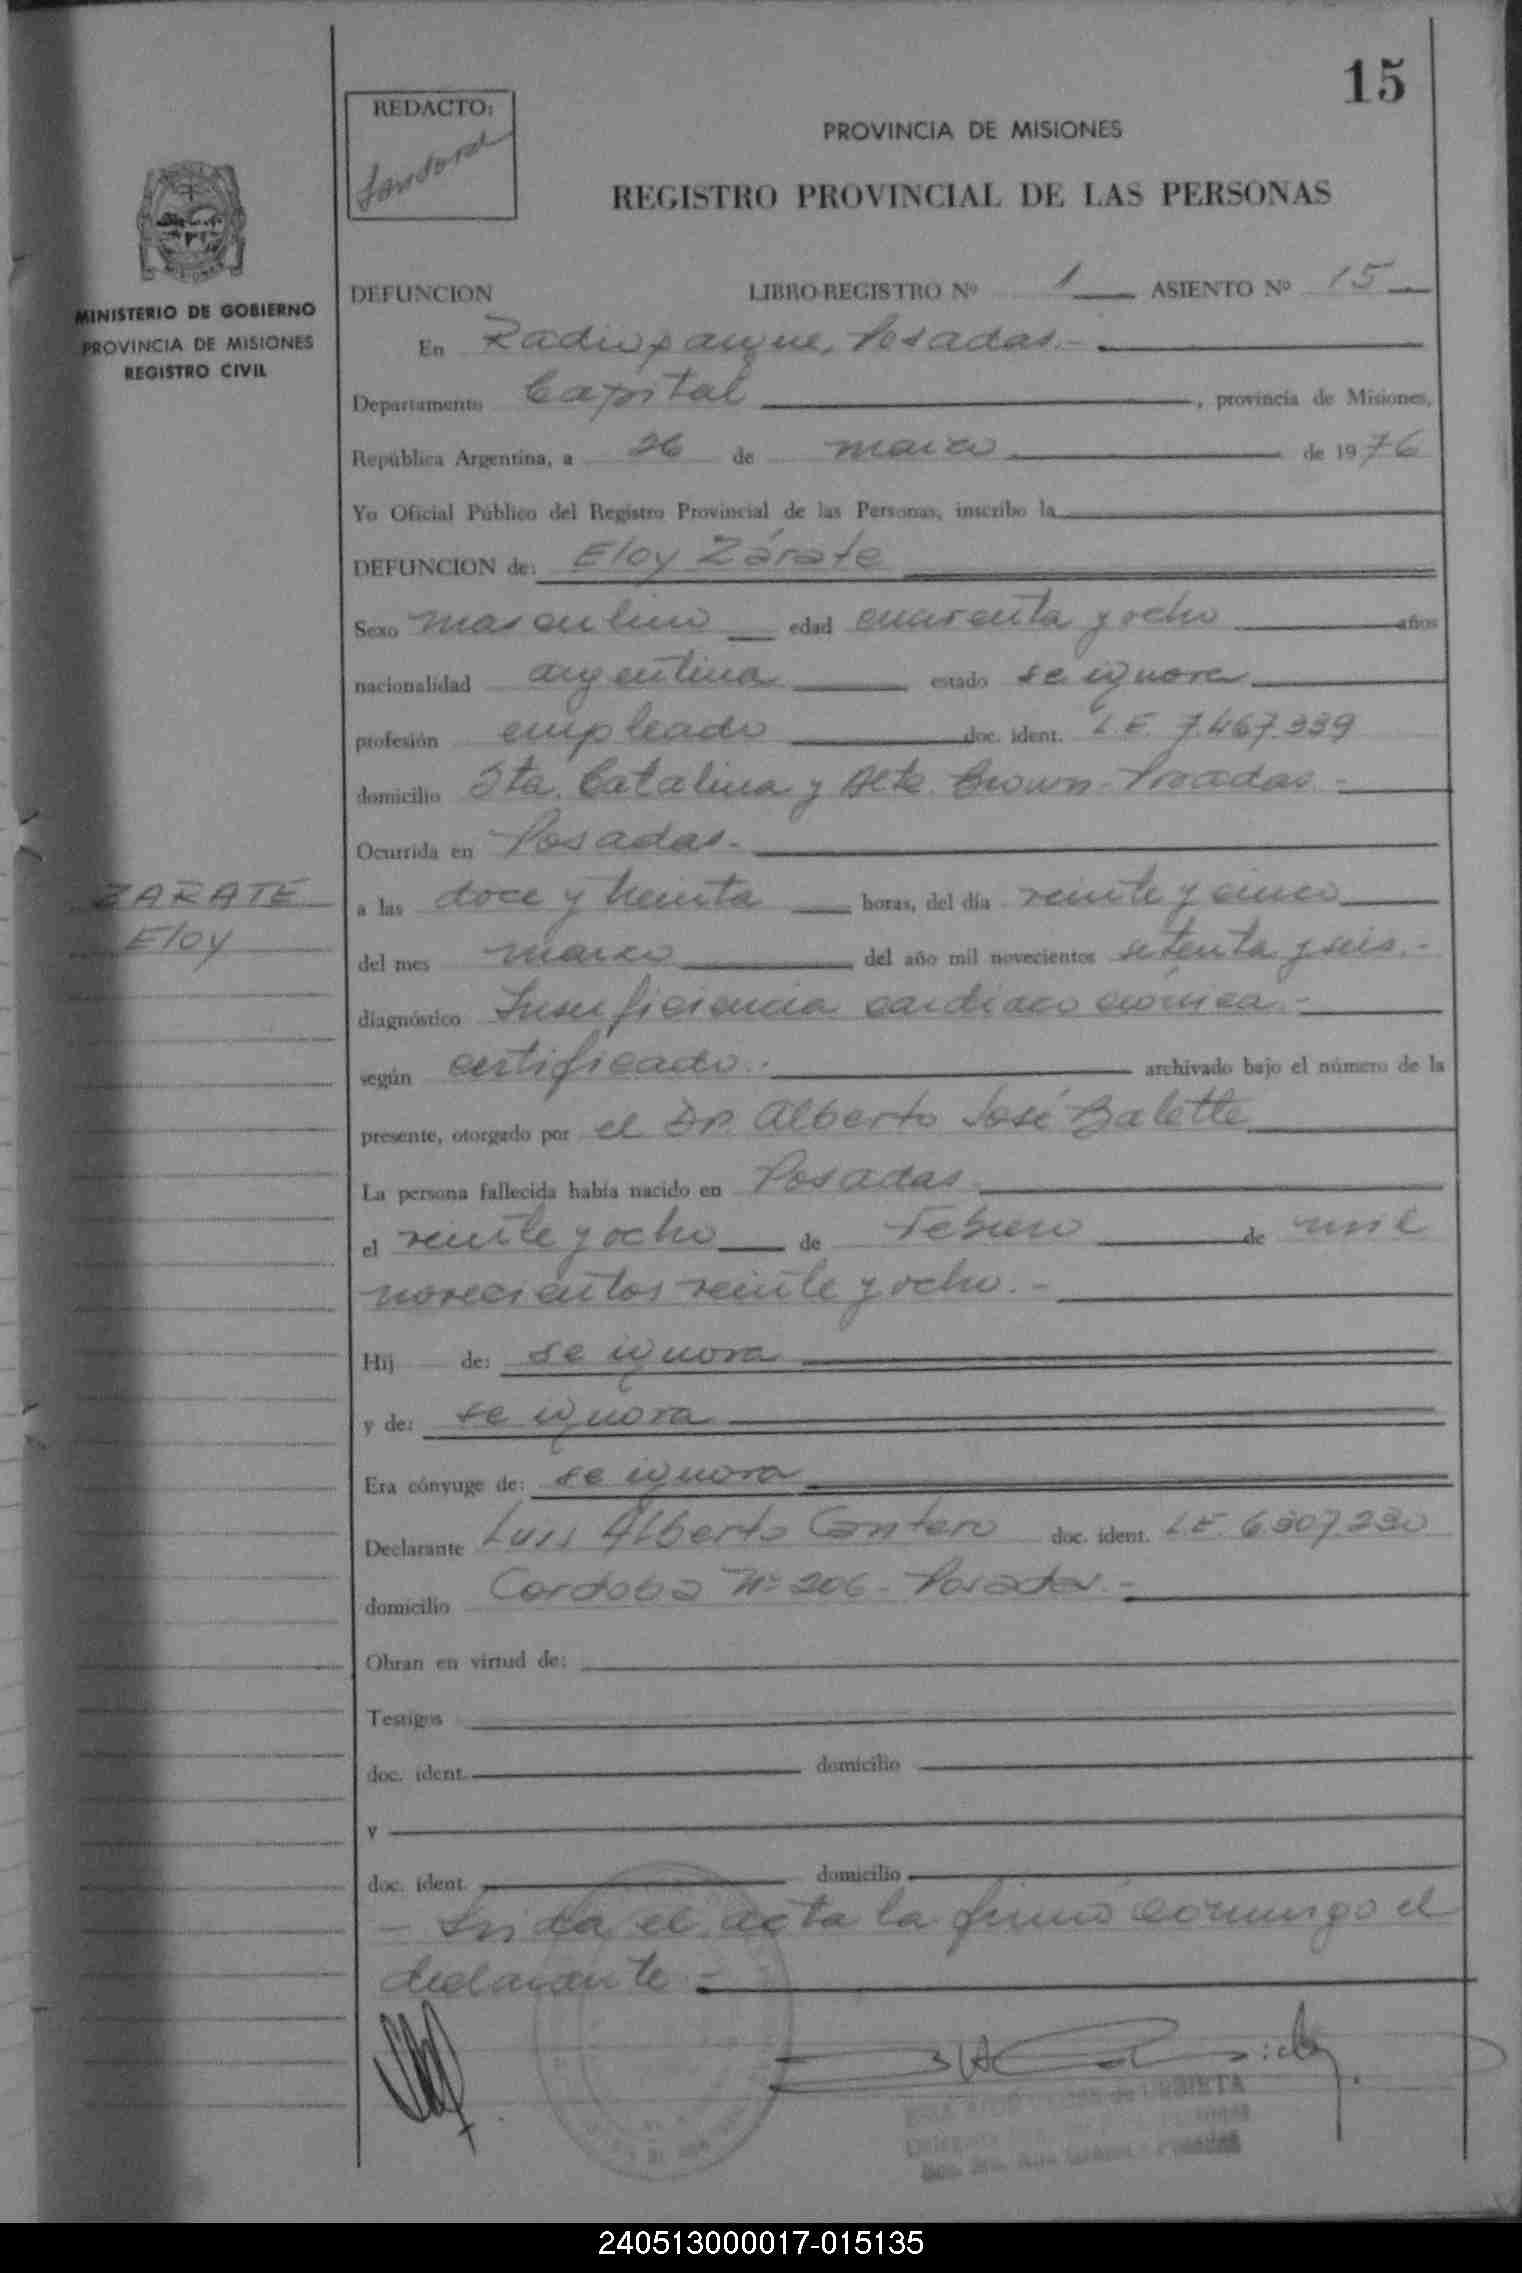 15
REDACTO:
PROVINCIA DE MISIONES
REGISTRO PROVINCIAL DE LAS PERSONAS
MISIONES
MINISTERIO DE GOBIERNO
PROVINCIA DE MISIONES
REGISTRO CIVIL
DEFUNCION LIBRO-REGISTRO Nº 1 ASIENTO Nº 15
En Radioparque, Posadas.-
Departamento Capital, provincia de Misiones,
República Argentina, a 26 de marzo de 1976
Yo Oficial Público del Registro Provincial de las Personas, inscribo la
DEFUNCION de: Eloy Zárate
Sexo masculino edad cuarenta y ocho años
nacionalidad argentina estado se ignora
profesión empleado doc. ident. L.E. 7.467.339
domicilio Sta. Catalina y Alte. Brown- Posadas.-
Ocurrida en Posadas.-
ZARATE
Eloy
a las doce y treinta horas, del día veinte y cinco
del mes marzo del año mil novecientos setenta y seis.-
diagnóstico Insuficiencia cardiaco crónica.-
según certificado.- archivado bajo el número de la
presente, otorgado por el Dr. Alberto José Balette
La persona fallecida había nacido en Posadas
el veinte y ocho de Febrero de mil
novecientos veinte y ocho.-
Hij de: se ignora
y de: se ignora
Era cónyuge de: se ignora
Declarante Luis Alberto Cantero doc. ident. L.E. 6.307.230
domicilio Cordoba Nº 206- Posadas.-
Obran en virtud de:
Testigos
doc. ident. domicilio
y
doc. ident. domicilio
- Leida el acta la firmó conmigo el
declarante.-
de URBIETA
240513000017-015135